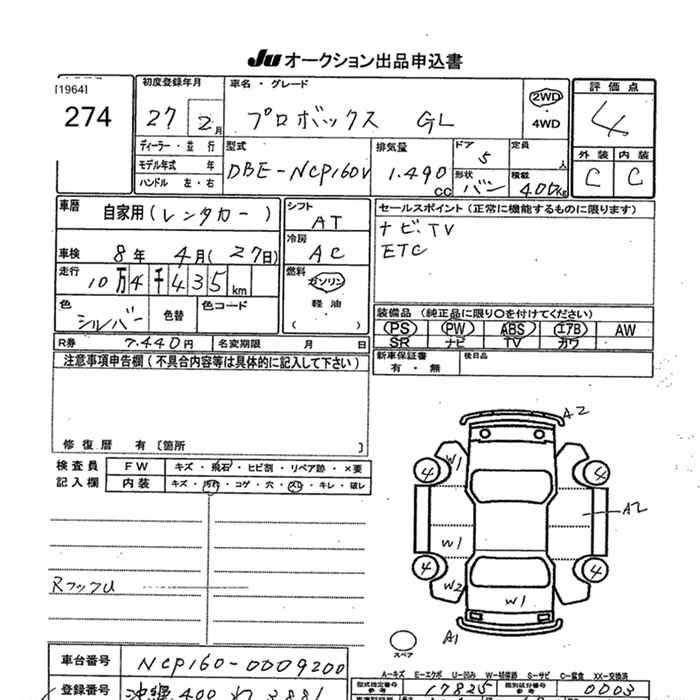 Ju オークション出品申込書
[1964]
274
初度登録年月
27 2月
車名・グレード
プロボックス GL
2WD
4WD
評価点
4
ディーラー・並行
モデル年式 年
ハンドル 左・右
型式
DBE-NCP160V
排気量
1.490cc
ドア
5
形状
バン
定員
人
積載
400kg
外装 内装
C C
車歴
自家用(レンタカー)
車検
8年 4月(27日)
走行
10万4千435km
色
シルバー
色替
色コード
シフト
AT
冷房
AC
燃料
ガソリン
軽油
( )
セールスポイント(正常に機能するものに限ります)
ナビTV
ETC
装備品 (純正品に限り○を付けてください)
PS PW ABS エアB AW
SR ナビ TV カワ
新車保証書
有・無
後日品
R券 7.440円 名変期限 月 日
注意事項申告欄(不具合内容等は具体的に記入して下さい)
修復歴 有[箇所 ]
検査員 FW キズ・飛石・ヒビ割・リペア跡・×要
記入欄 内装 キズ・汚れ・コゲ・穴・スレ・キレ・破レ
RフックU
A2
W1
4
4
A2
W1
4
4
W2
W1
A1
スペア
A-キズ E-エクボ U-凹み W-補修跡 S-サビ C-腐食 XX-交換済
車台番号 NCP160-0009200
型式指定番号
参考
17825
類別区分番号
参考
0003
登録番号 沖縄 400 わ 3881